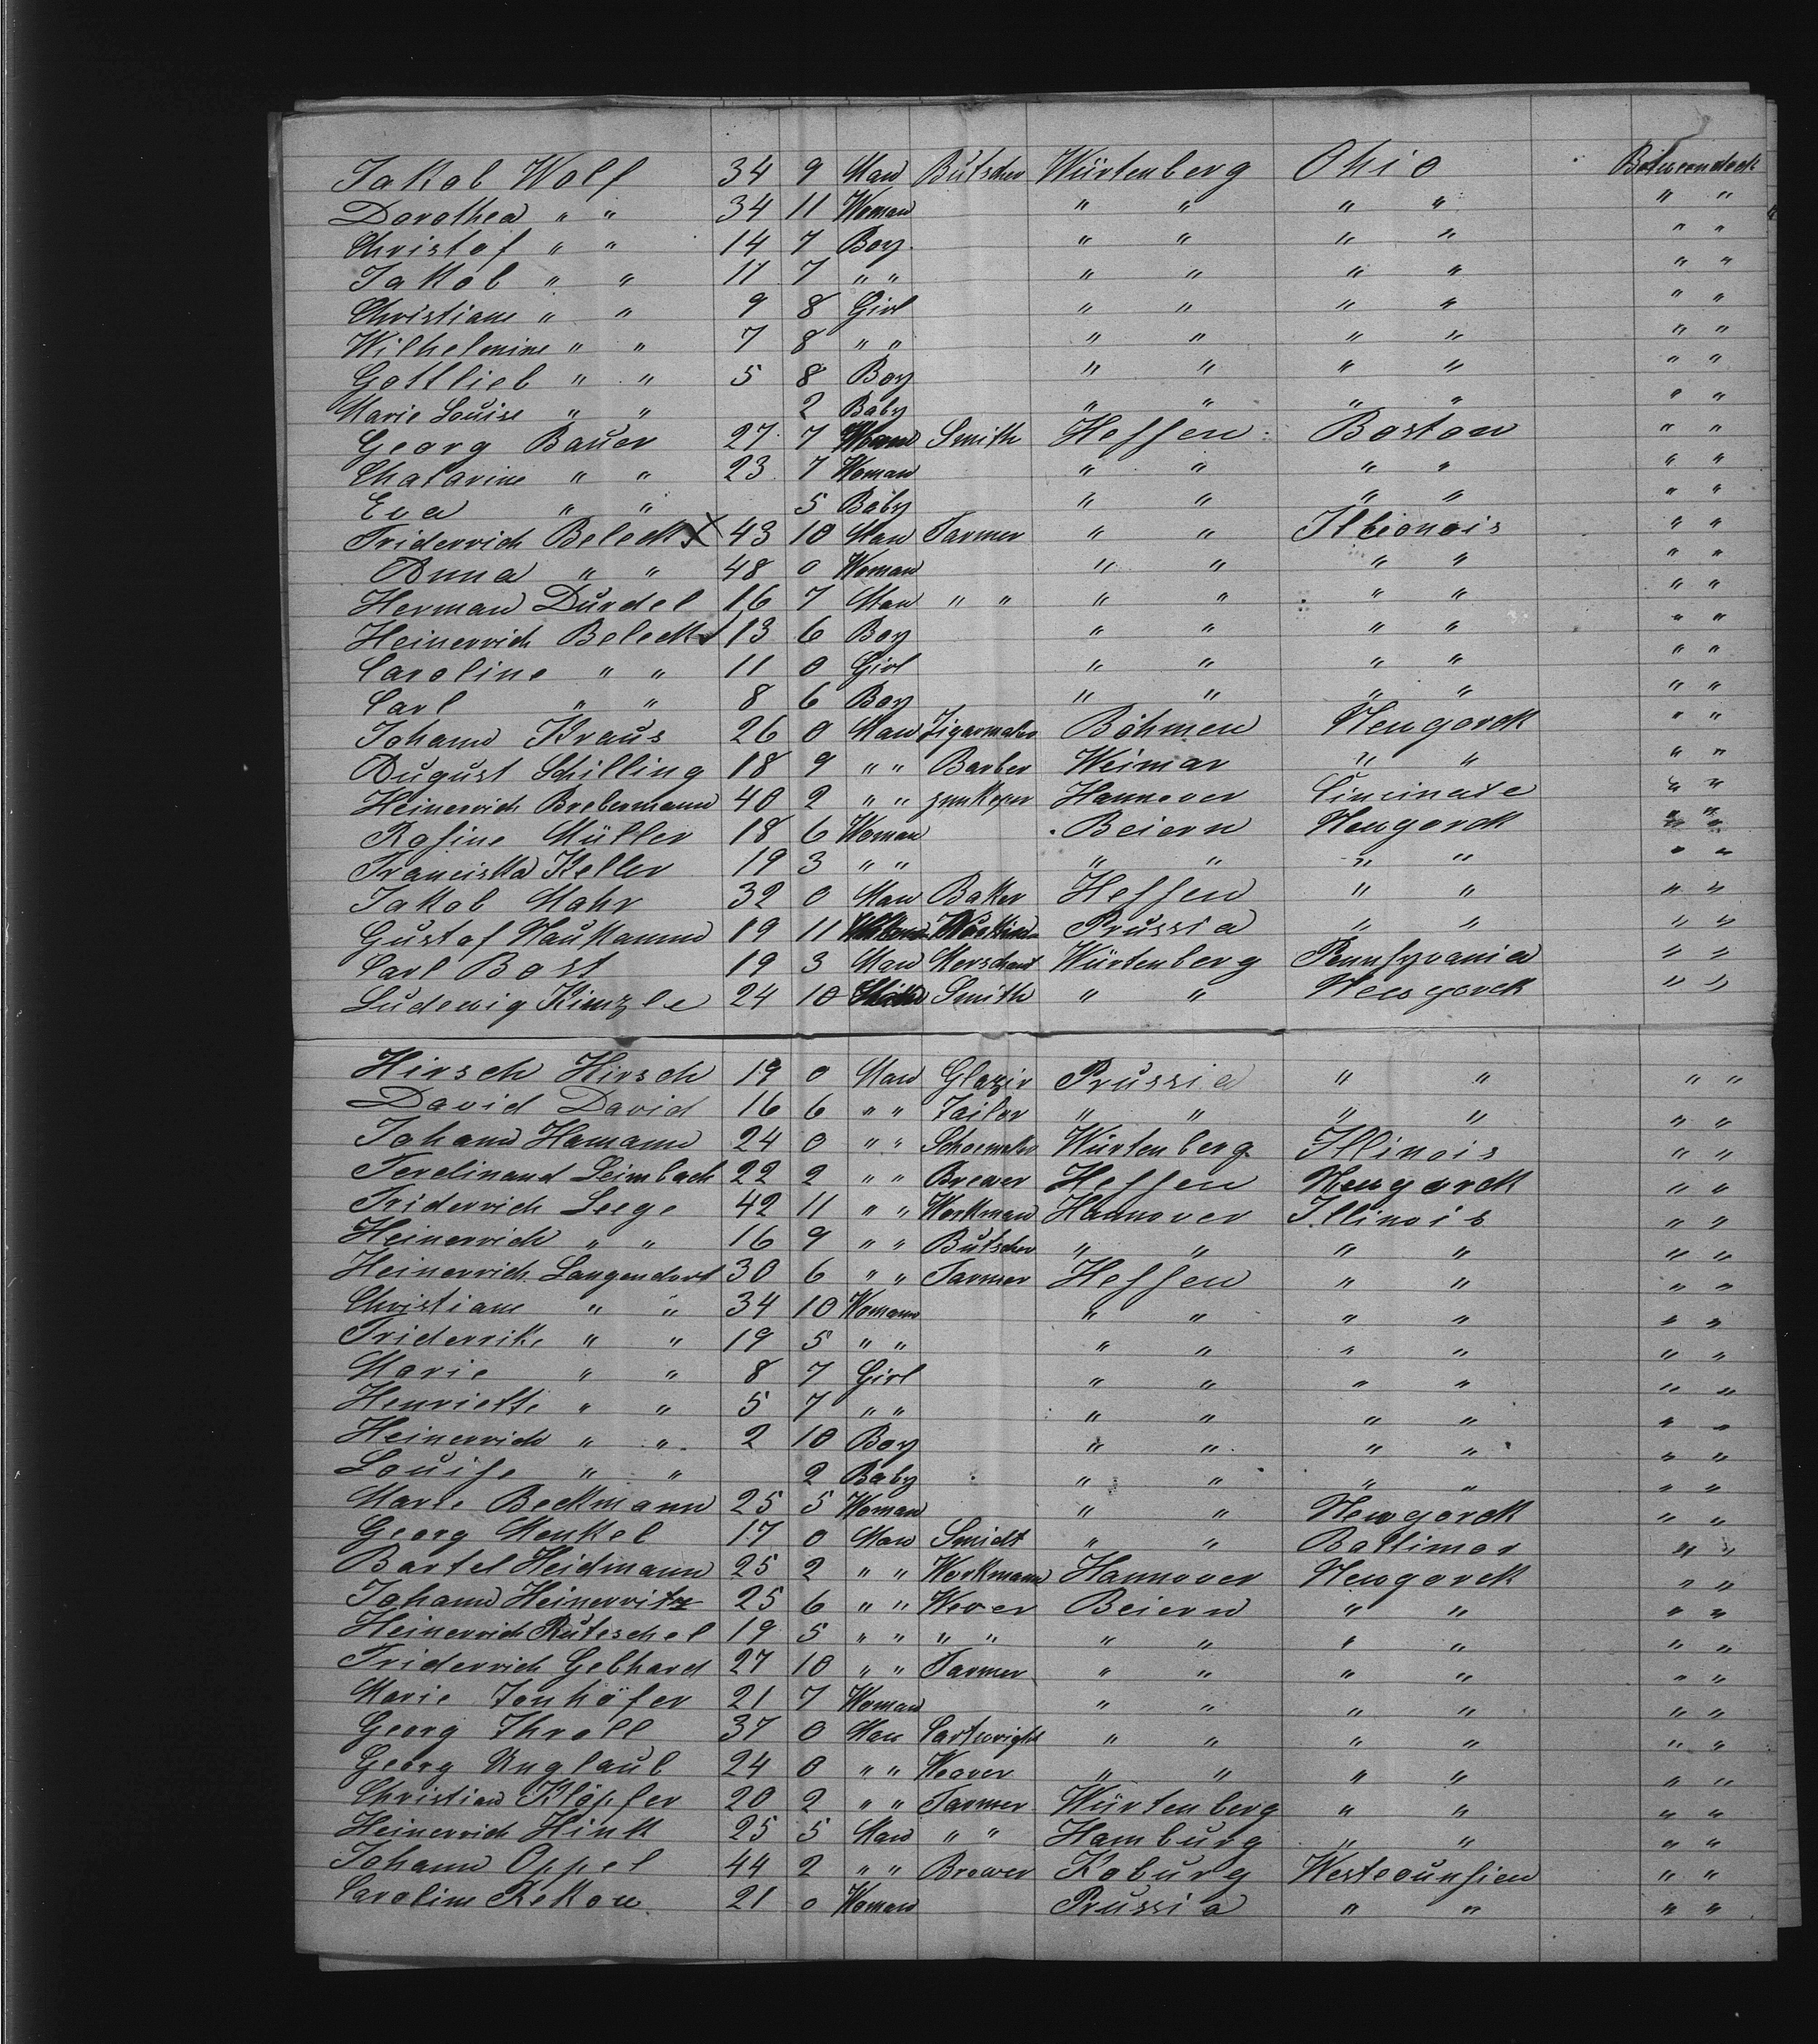 Jakob Wolf 34 9 Man Butscher Würtenberg Ohio Betweendeck
Dorothea " " 34 11 Woman " " " " " "
Christof " " 14 7 Boy " " " " " "
Jakob " " 11 7 " " " " " " " "
Christiane " " 9 8 Girl " " " " " "
Wilhelmine " " 7 8 " " " " " " " "
Gottlieb " " 5 8 Boy " " " " " "
Marie Louise " " 2 Baby " " " " " "
Georg Bauer 27 7 Smith Hessen Boston " "
Chatarine " " 23 7 Woman " " " " " "
Eva " " 5 Baby " " " " " "
Friderrich Beleckt 43 10 Man Farmer " " Illeonois " "
Anna " " 48 0 Woman " " " " " "
Herman Durdel 16 7 Man " " " " " " " "
Heinerrich Beleckt 13 6 Boy " " " " " "
Caroline " " 11 0 Girl " " " " " "
Carl " " 8 6 Boy " " " " " "
Johann Kraus 26 0 Man Zigarmaker Böhmen Newyorck " "
August Schilling 18 9 " " Barber Weimar " " " "
Heinerrich Brebermann 40 2 " " Hannover Cincinate " "
Rosine Müller 18 6 Woman Beiern Newyorck " "
Franciska Keller 19 3 " " " " " " " "
Jakob Mahr 32 0 Man Baker Hessen " " " "
Gustaf Naukamm 19 11 Prussia " " " "
Carl Bost 19 3 Man Merschant Würtenberg Pennsyvania " "
Ludewig Kinzle 24 10 Smith " " Newyorck " "
Hirsch Hirsch 19 0 Man Glazir Prussia " " " "
David David 16 6 " " Tailor " " " " " "
Johann Hamann 24 0 " " Schoemaker Würtenberg Illinois " "
Ferdinand Leimbach 22 2 " " Brewer Hessen Newyorck " "
Friderrich Leege 42 11 " " Workman Hannover Illinois " "
Heinerrich " " 16 9 " " Butscher " " " " " "
Heinerrich Langendorf 30 6 " " Farmer Hessen " " " "
Christiane " " 34 10 Womann " " " " " "
Friderrike " " 19 5 " " " " " " " "
Marie " " 8 7 Girl " " " " " "
Henriette " " 5 7 " " " " " " " "
Heinerrich " " 2 10 Boy " " " " " "
Louise " " 2 Baby " " " " " "
Marie Beckmann 25 5 Woman " " Newyorck " "
Georg Menkel 17 0 Man Smidt " " Baltimor " "
Bartel Heidmann 25 2 " " Workmann Hannover Newyorck " "
Johann Heinerritz 25 6 " " Wever Beiern " " " "
Heinerrich Ruteschel 19 5 " " " " " " " " " "
Friderrich Gebhard 27 10 " " Farmer " " " " " "
Marie Janhöfer 21 7 Woman " " " " " "
Georg Throll 37 0 Man Cartwright " " " " " "
Georg Unglaub 24 0 " " Weaver " " " " " "
Christian Klöpfer 20 2 " " Farmer Würtenberg " " " "
Heinerrich Hink 25 5 Man " " Hamburg " " " "
Johann Oppel 44 2 " " Brewer Koburg Westcounsien " "
Caroline Kekon 21 0 Woman Prussia " " " "